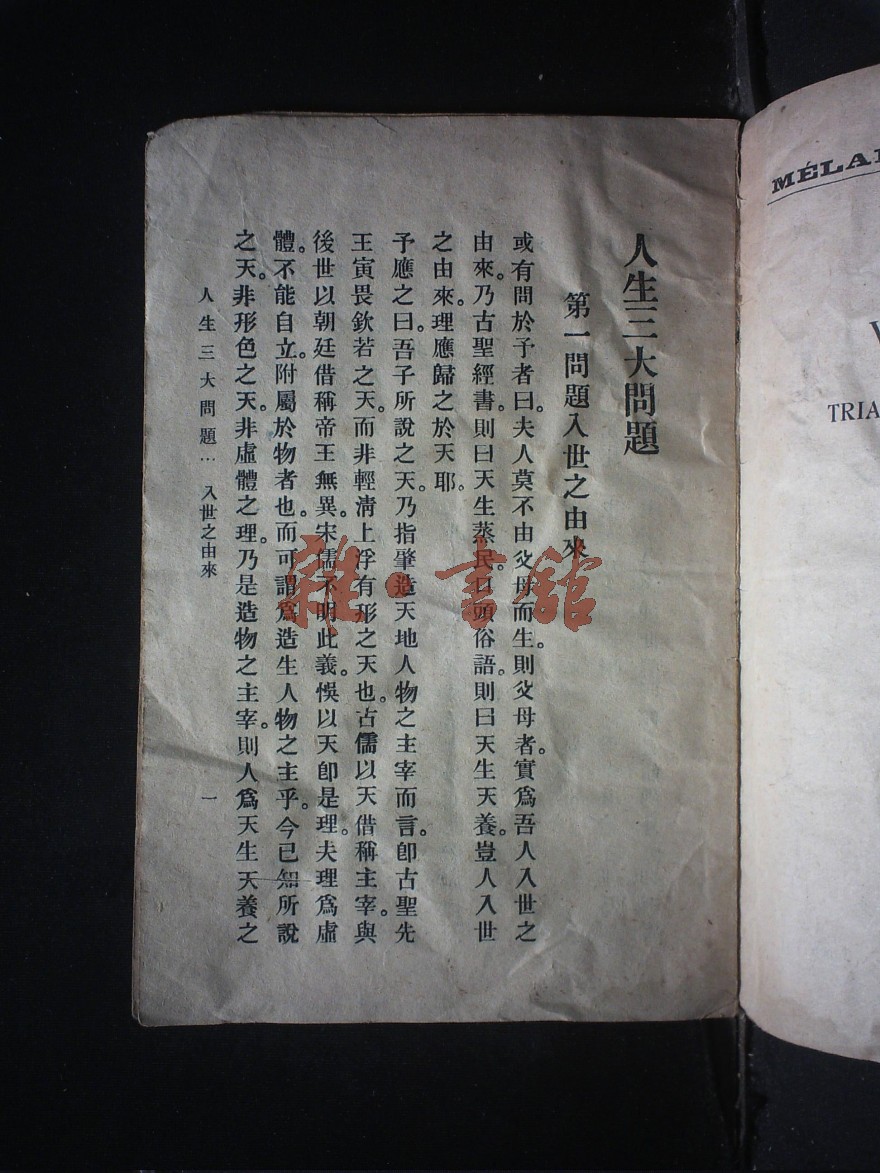 人生三大問題
第一問題入世之由來
或有問於予者曰。夫人莫不由父母而生。則父母者。實爲吾人入世之
由來。乃古聖經書。則曰天生蒸民。口頭俗語。則曰天生天養。豈人入世
之由來。理應歸之於天耶。
予應之曰。吾子所說之天。乃指肇造天地人物之主宰而言。卽古聖先
王寅畏欽若之天。而非輕淸上浮有形之天也。古儒以天借稱主宰。與
後世以朝廷借稱帝王無異。宋儒不明此義。悞以天卽是理。夫理爲虛
體。不能自立。附屬於物者也。而可謂爲造生人物之主乎。今已知所說
之天。非形色之天。非虛體之理。乃是造物之主宰。則人爲天生天養之
人生三大問題⋯入世之由來
一
雜·書館
MÉLA
TRIA